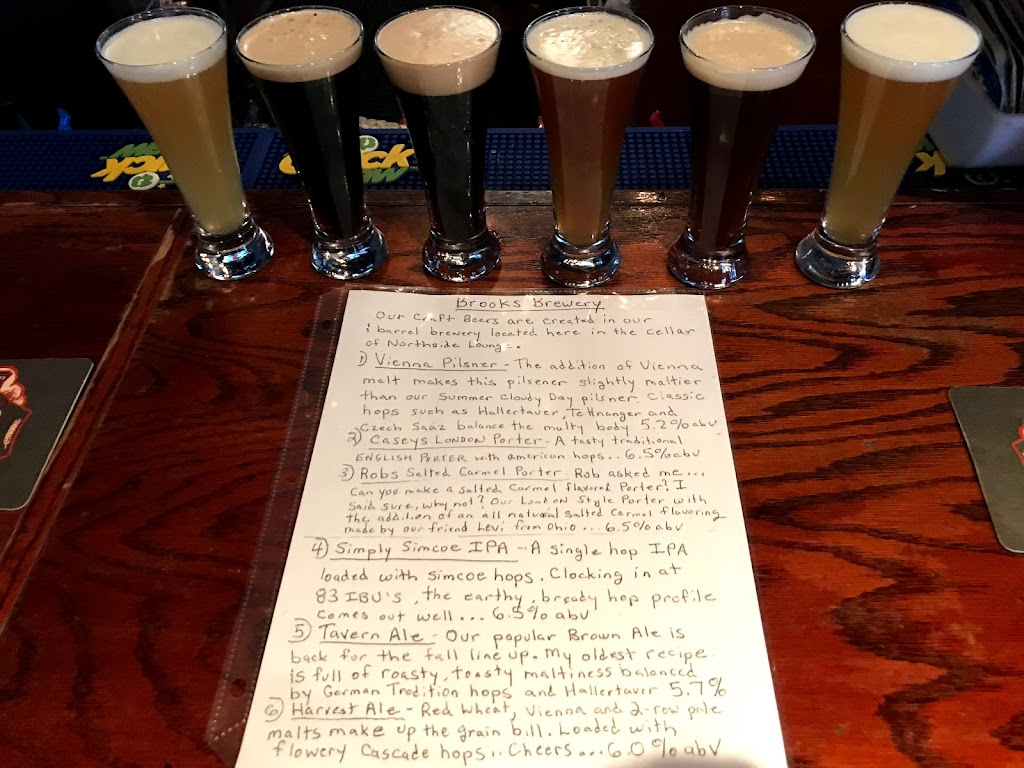 Brooks Brewery
Our Craft Beers are created in our
1 barrel brewery located here in the cellar
of Northside Lounge.
1) Vienna Pilsner - The addition of Vienna
malt makes this pilsener slightly maltier
than our Summer Cloudy Day pilsner. Classic
hops such as Hallertauer, Tettnanger and
Czech Saaz balance the malty body 5.2% abv
2) Caseys London Porter - A tasty traditional
ENGLISH PORTER with american hops.. 6.5% abv
3) Robs Salted Carmel Porter. Rob asked me...
Can you make a salted Carmel flavored Porter? I
said sure, why not? Our London Style Porter with
the addition of an all natural salted Carmel flavoring
made by our friend Levi from Ohio ... 6.5% abv
4) Simply Simcoe IPA - A single hop IPA
loaded with simcoe hops. Clocking in at
83 IBU'S, the earthy, bready hop profile
comes out well... 6.5% abv
5) Tavern Ale - Our popular Brown Ale is
back for the fall line up. My oldest recipe
is full of roasty, toasty maltiness balanced
by German Tradition hops and Hallertauer 5.7%
6) Harvest Ale - Red Wheat, Vienna and 2-row pale
malts make up the grain bill. Loaded with
flowery Cascade hops.. Cheers... 6.0% abv